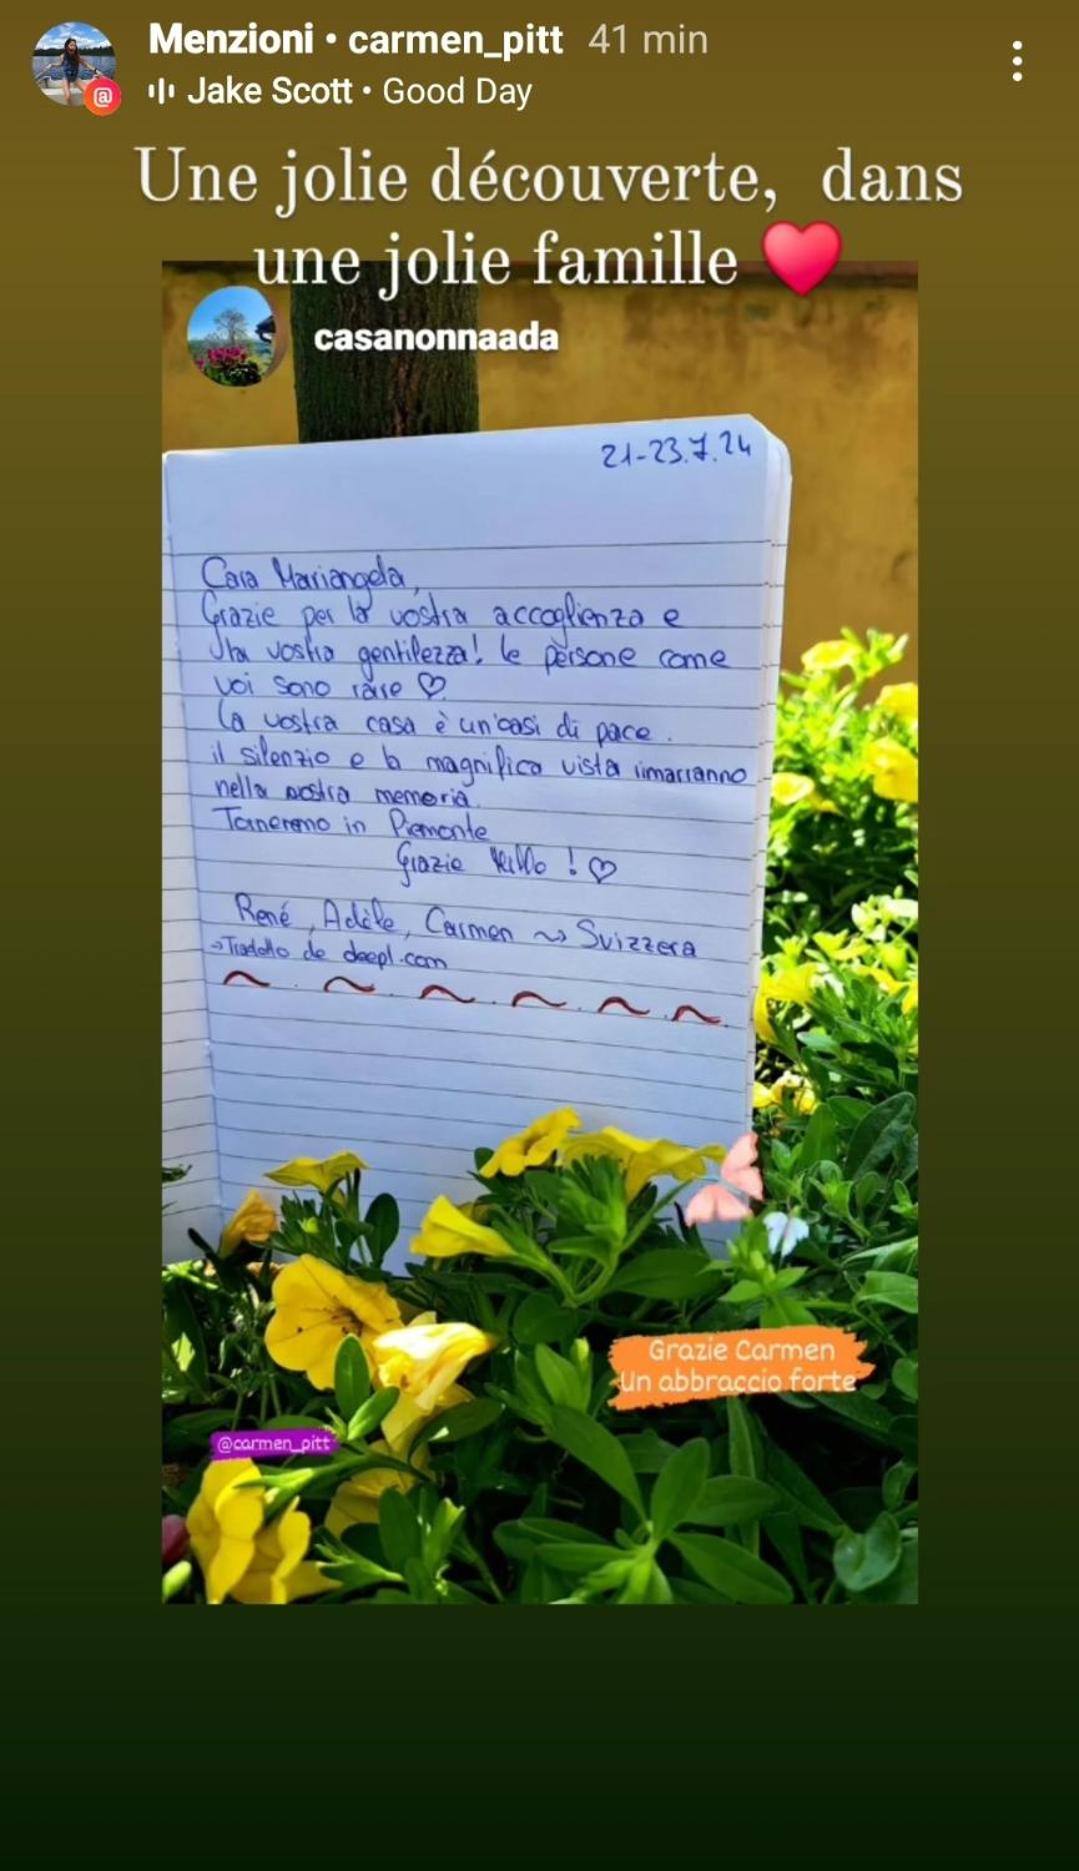 Menzioni • carmen_pitt 41 min
Jake Scott • Good Day
Une jolie découverte, dans
une jolie famille ❤
casanonnaada
21-23.7.24
Cara Mariangela,
Grazie per la vostra accoglienza e
la vostra gentilezza! le persone come
voi sono rare ♡
La vostra casa è un'oasi di pace.
il silenzio e la magnifica vista rimarranno
nella nostra memoria.
Torneremo in Piemonte
Grazie Mille ! ♡
René, Adèle, Carmen ~> Svizzera
→ Tradotto de deepl.com
Grazie Carmen
Un abbraccio forte
@carmen_pitt